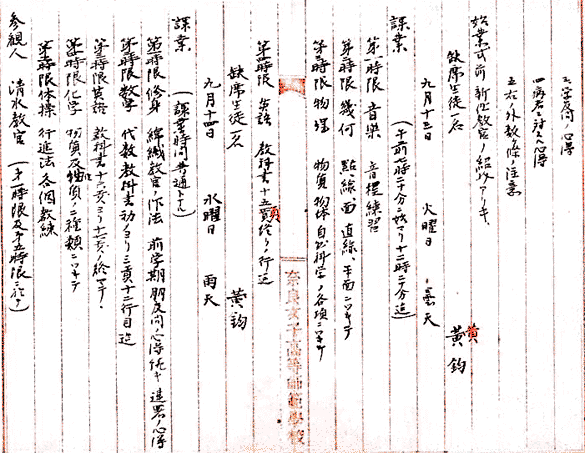 三、学友間ノ心得
四、病者ニ対スル心得
五、右ノ外数條ノ注意
始業式前新任教官ノ紹介アリキ、
缺席生徒一名
黄鈞
九月十三日 火曜日 曇天
課業 (午前七時二十分ニ始マリ十二時二十分迄)
第一時限 音樂 音程練習
第二時限 幾何 點、線、面、直線、平面ニツキテ
第三時限 物理 物質物体自然科学ノ各項ニツキテ
第四時限 英語 教科書十五頁終リノ行迄
缺席生徒一名 黄鈞
九月十四日 水曜日 雨天
課業 (課業時間普通トナル)
第一時限 修身 教官 作法 前学期朋友間ノ心得 続キ 心得
第二時限 数学 代数教科書初メヨリ三頁十二行目迄
第三時限 英語 教科書十六頁ヨリ十七頁ノ終マデ
第四時限 化学 物質及物質ノ種類ニツキテ
第五時限 体操 行進法 各個教練
参観人 清水教官 (第一時限及第五時限ニ於テ)
奈良女子高等師範學校